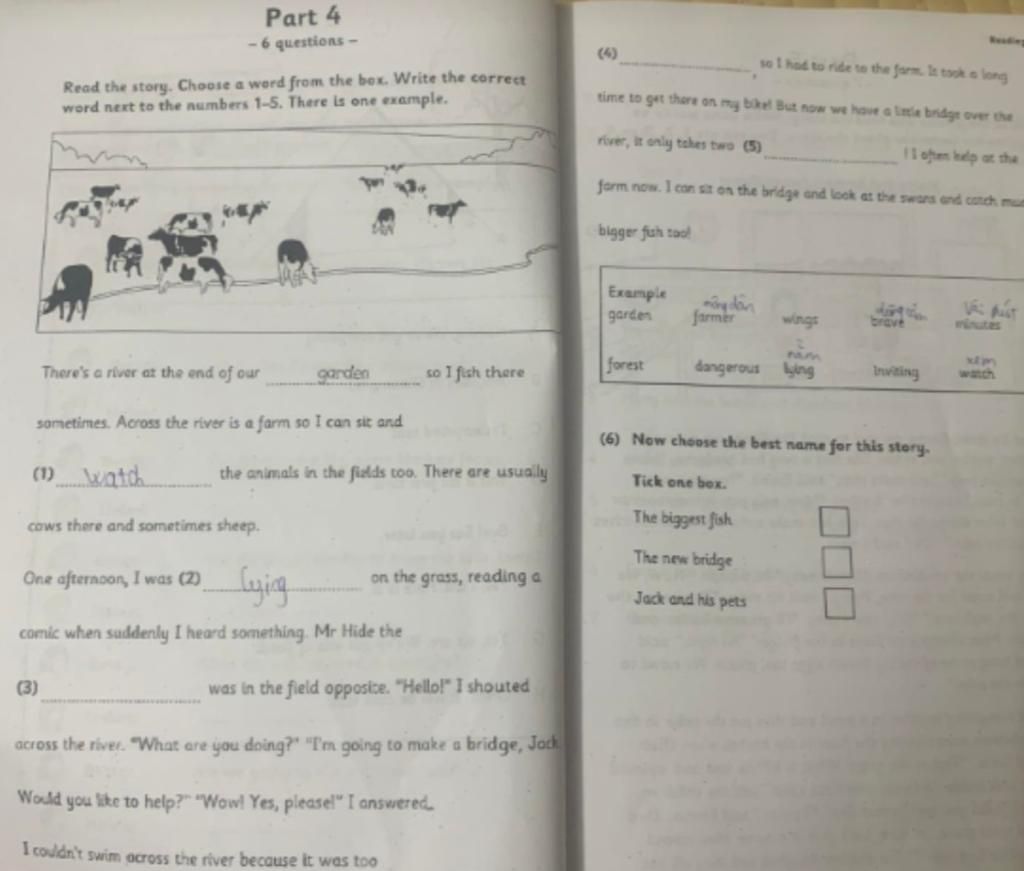 Part 4
– 6 questions –
Read the story. Choose a word from the box. Write the correct
word next to the numbers 1–5. There is one example.
There's a river at the end of our garden so I fish there
sometimes. Across the river is a farm so I can sit and
(1) watch the animals in the fields too. There are usually
cows there and sometimes sheep.
One afternoon, I was (2) lying on the grass, reading a
comic when suddenly I heard something. Mr Hide the
(3) was in the field opposite. "Hello!" I shouted
across the river. "What are you doing?" "I'm going to make a bridge, Jack.
Would you like to help?" "Wow! Yes, please!" I answered.
I couldn't swim across the river because it was too
Reading
(4) , so I had to ride to the farm. It took a long
time to get there on my bike! But now we have a little bridge over the
river, it only takes two (5) ! I often help at the
farm now. I can sit on the bridge and look at the swans and catch
bigger fish too!
Example
nông dân dũng cảm
garden farmer wings brave minutes
nằm
xem
forest dangerous lying inviting watch
(6) Now choose the best name for this story.
Tick one box.
The biggest fish
The new bridge
Jack and his pets